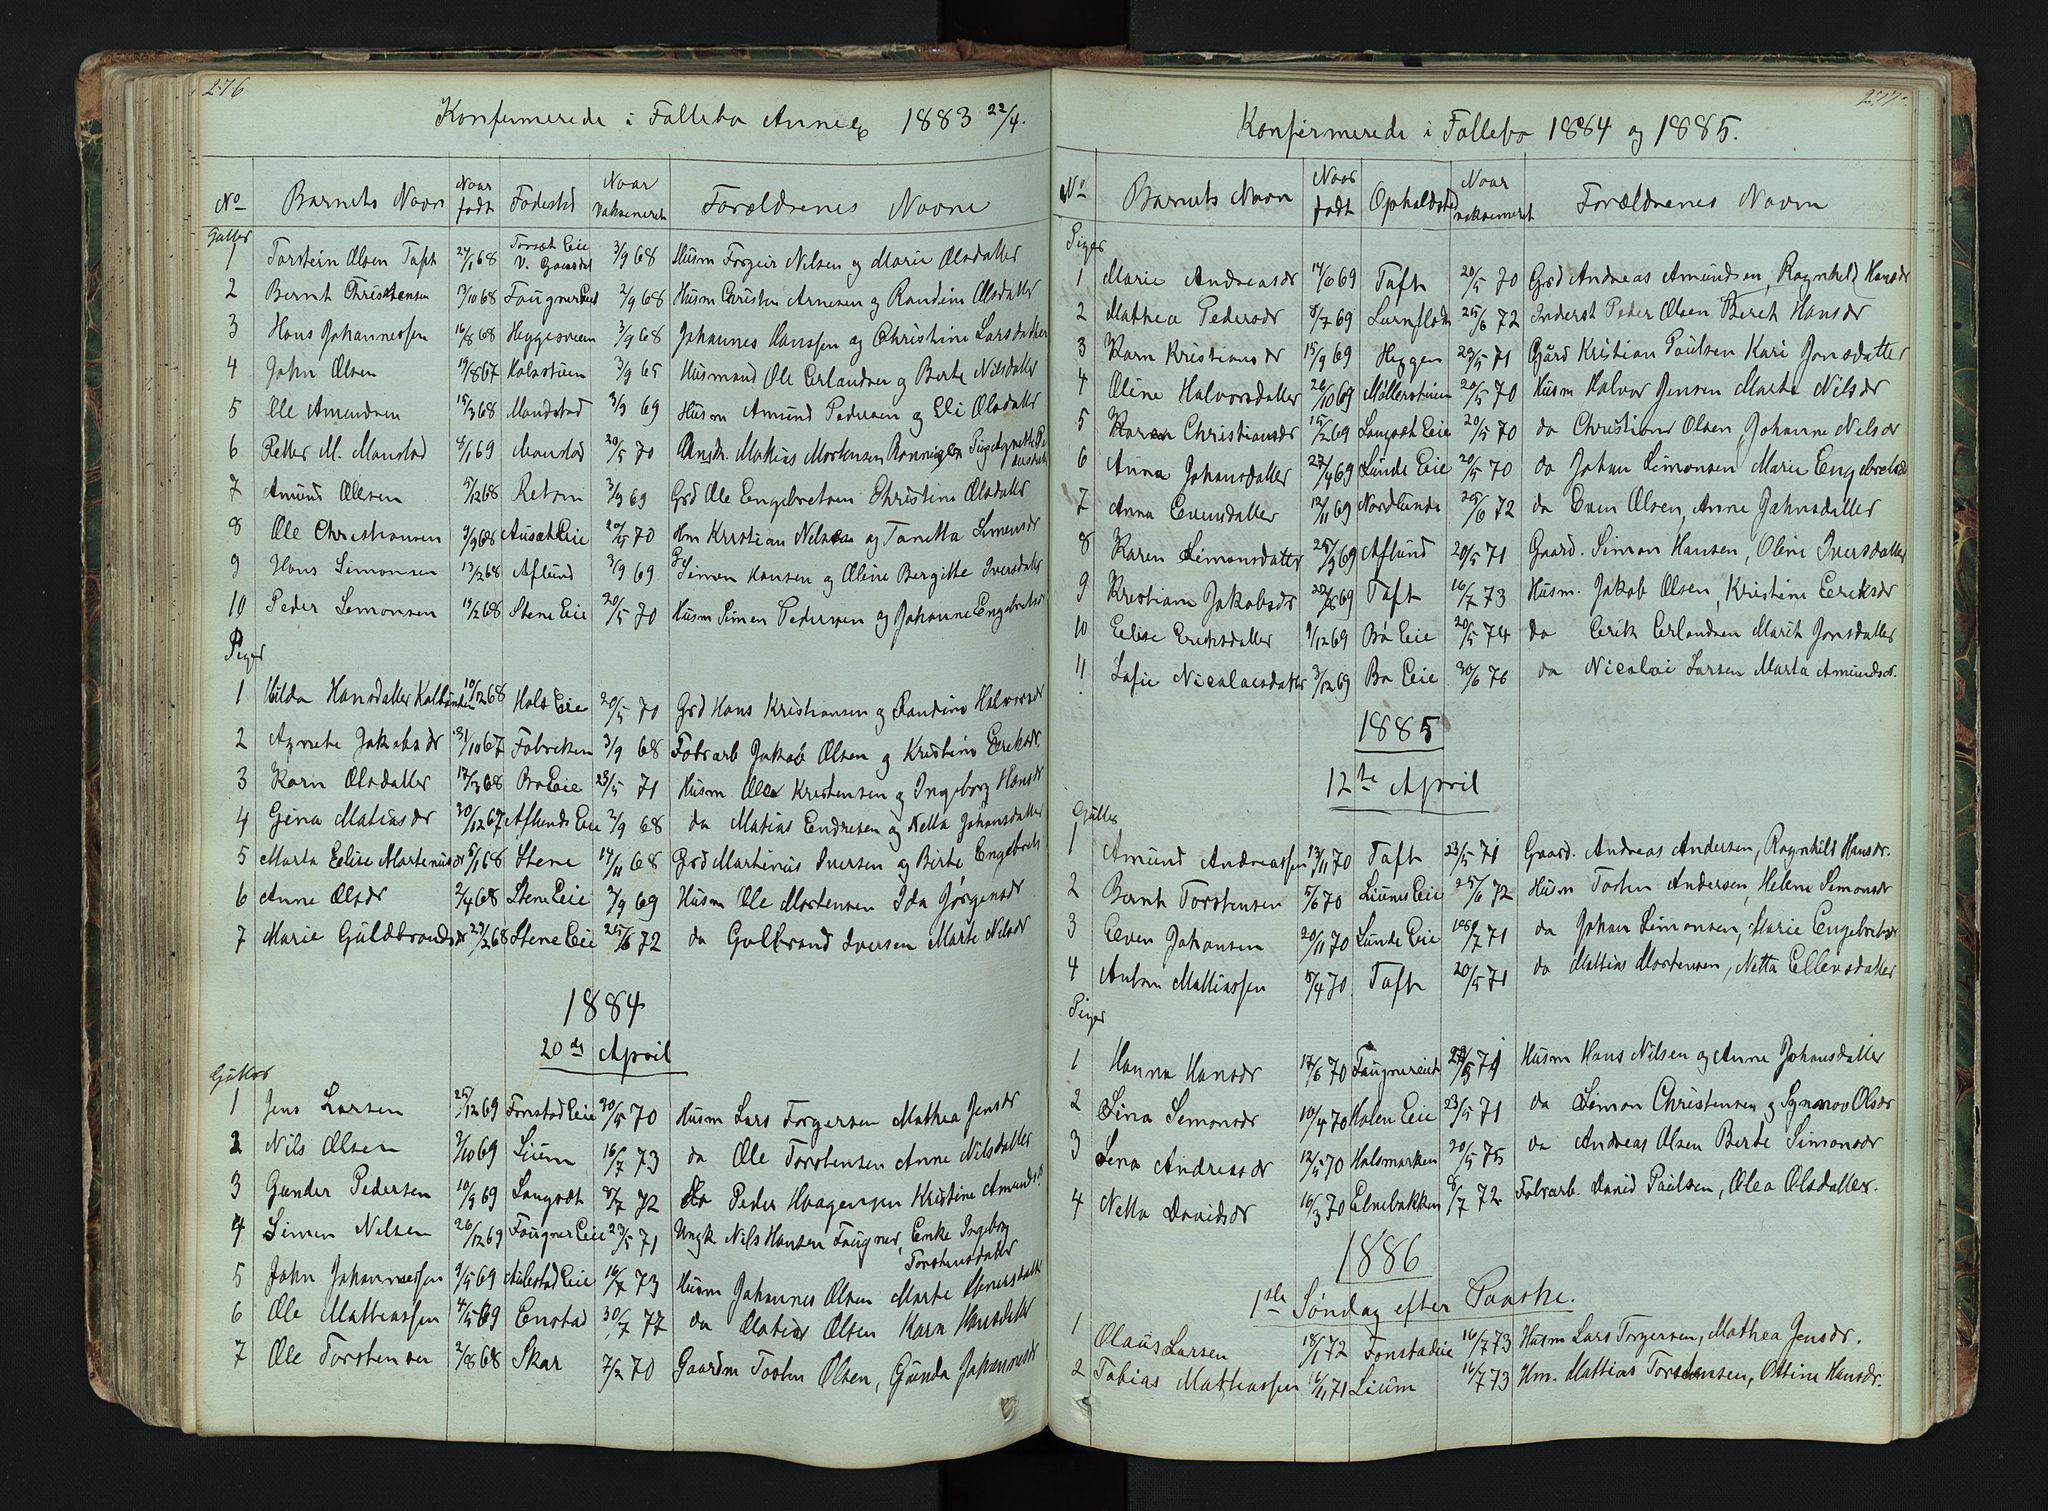 276
Konfirmerede i Follebo Annex 1883 22/4.
No Barnets Navn Naar født Fødested Naar vaksineret Forældrenes Navne
Gutter
1 Torstein Olsen Taft 27/1 68 Torsæt Eie V. Gausdal 3/9 68 Husm Torgeir Nilsen og Marie Olsdatter
2 Bernt Christensen 13/10 68 Faugner Eiet 2/9 68 Husm Christen Arnesen og Randine Olsdatter
3 Hans Johannessen 16/8 68 Heggesveen 3/9 68 Johannes Hanssen og Christine Larsdatter
4 John Olsen 19/8 67 Holsstuen 3/9 65 Husmand Ole Erlandsen og Berte Nilsdatter
5 Ole Amundsen 15/3 68 Mandstad 3/9 69 Husm Amund Pedersen og Eli Olsdatter
6 Petter M. Manstad 8/1 69 Manstad 20/5 70 Mattias Mortensen Rønningen Pige Agnethe Pedersdatter
7 Amund Olsen 5/12 68 Retvm 3/9 69 Grd Ole Engebretsen Christine Olsdatter
8 Ole Christiansen 3/9 68 Ausæt Eie 20/5 70 Hm Kristian Nilsen og Taretta Simensdr
9 Hans Simonsen 13/2 68 Aflund 3/9 69 G Simen Hansen og Oline Bergitte Iversdatter
10 Peder Semonsen 19/2 68 Stene Eie 20/5 70 Husm Simen Pedersen og Johanne Engebretsdr
Piger
1 Hilda Hansdatter Kalstuen 10/12 68 Hols Eie 20/5 70 Grd Hans Kristiansen og Randine Halvorsdr
2 Agnete Jakobsdr 31/10 67 Fabriken 3/9 68 Fabrarb Jakob Olsen og Kristine Eeriksdr.
3 Karn Olsdatter 17/3 68 Bø Eie 23/5 71 Husm Ole Kristensen og Ingeborg Hansdr
4 Gina Matiasdr 30/12 67 Aflunds Eie 2/9 68 do Matias Endresen og Netta Johansdatter
5 Marta Eelise Martinusdr 5/1 68 Stene 14/11 68 Grd Martinus Iversen og Birte Engebrets
6 Anne Olsdr 2/4 68 Stene Eie 3/9 69 Husm Ole Mortensen Ida Jørgensdr
7 Marie Guldbrandsdr 29/2 68 Stene Eie 25/6 72 do Gulbrand Iversen Marte Nilsdr
1884
20de April
Gutter
1 Jens Larsen 25/12 69 Fonstad Eie 30/5 70 Husm Lars Torgersen Mathea Jensdr
2 Nils Olsen 3/10 69 Lium 16/7 73 do Ole Torstensen Anne Nilsdatter
3 Gunder Pedersen 10/9 69 Langsæt 8/7 72 do Peder Haagensen Kristine Amunds.
4 Simen Nilsen 26/12 69 Faugner Eie 23/5 71 Ungk Nils Hansen Faugner, Enke Ingeborg Torstensdatter
5 John Johannessen 9/5 69 Aulestad Eie 16/7 73 Husm Johannes Olsen Marte
6 Ole Mattiassen 4/5 69 Enstad 30/7 77 do Matias Olsen Karn Hansdatter
7 Ole Torstensen 2/8 68 Skar 7/2 70 Gaardm Tosten Olsen, Gunda Johannesdr
277.
Konfirmerede i Follebo 1884 og 1885.
No Barnets Navn Naar født Opholdsted Naar vaksineret Forældrenes Navn
Piger
1 Marie Andreasdr 14/6 69 Taft 20/5 70 Grd Andreas Amundsen, Ragnhild Hansdr
2 Mathea Pedersdr 8/7 69 Lurnflod 25/6 72 Inderst Peder Olsen Beret Hansdr
3 Karn Kristiansdr 15/9 69 Heggen 29/5 71 Gård Kristian Paulsen Kari Jonsdatter
4 Oline Halvorsdatter 26/10 69 Møllerstuen 20/5 70 Husm Halvor Jensen Marte Nilsdr
5 Karen Christiansdr 15/2 69 Langsæt Eie 20/5 70 do Christian Olsen Johanne Nilsdr
6 Anna Johansdatter 27/4 69 Lunde Eie 20/5 70 do Johan Simonsen Marie Engebretsd
7 Anna Evensdatter 12/11 69 Nordlunde 25/6 72 do Even Olsen, Anne Jahnsdatter
8 Karen Simonsdatter 25/3 69 Aflund 20/5 71 Gaard. Simon Hansen, Oline Iversdatter
9 Kristiane Jakobsdr 22/8 69 Taft 16/7 73 Husm. Jakob Olsen, Kristine Eeriksdr
10 Eelise Eeriksdatter 9/12 69 Bø Eie 20/5 74 do Eerik Erlandsen Marit Jonsdatter
11 Sofie Nicolaisdatter 3/12 69 Bø Eie 30/6 76 do Nicolai Larsen Marta Amundsdr.
1885
12te April
Gutter
1 Amund Andreassen 13/11 70 Taft 23/5 71 Gaard. Andreas Andersen, Ragnhild Hansdr.
2 Bernt Torstensen 5/6 70 Liums Eie 25/6 72 Husm Tosten Andersen, Helene Simonsdr
3 Eeven Johansen 20/11 70 Lunde Eie 7 71 do Johan Simonsen, Marie Engebretsdr
4 Anton Mattiassen 15/4 70 Taft 20/5 71 do Mattias Mortensen, Netta Ellensdatter
Piger
1 Hanna Hansdr 17/6 70 Faugnereiet 5 71 Husm Hans Nilsen og Anne Johansdatter
2 Sina Semonsdr 10/4 70 Holen Eie 23/5 71 do Simon Christensen og Synnov Olsdr
3 Lena Andreasdr 12/5 70 Holsmarken 20/5 75 do Andreas Olsen Berte Simonsdr
4 Netta Davidsdr 16/3 70 Elnebakken 8/7 72 Fabrarb. David Paulsen, Olea Olsdatter.
1886
1ste Søndag efter Paaske.
1 Olaus Larsen 18/1 72 Fonstadeie 16/7 73 Husm Lars Torgersen, Mathea Jensdr.
2 Tobias Mathiassen 16/11 71 Lium 16/7 73 Hm. Mattias Torstensen, Ottine Hansdr.